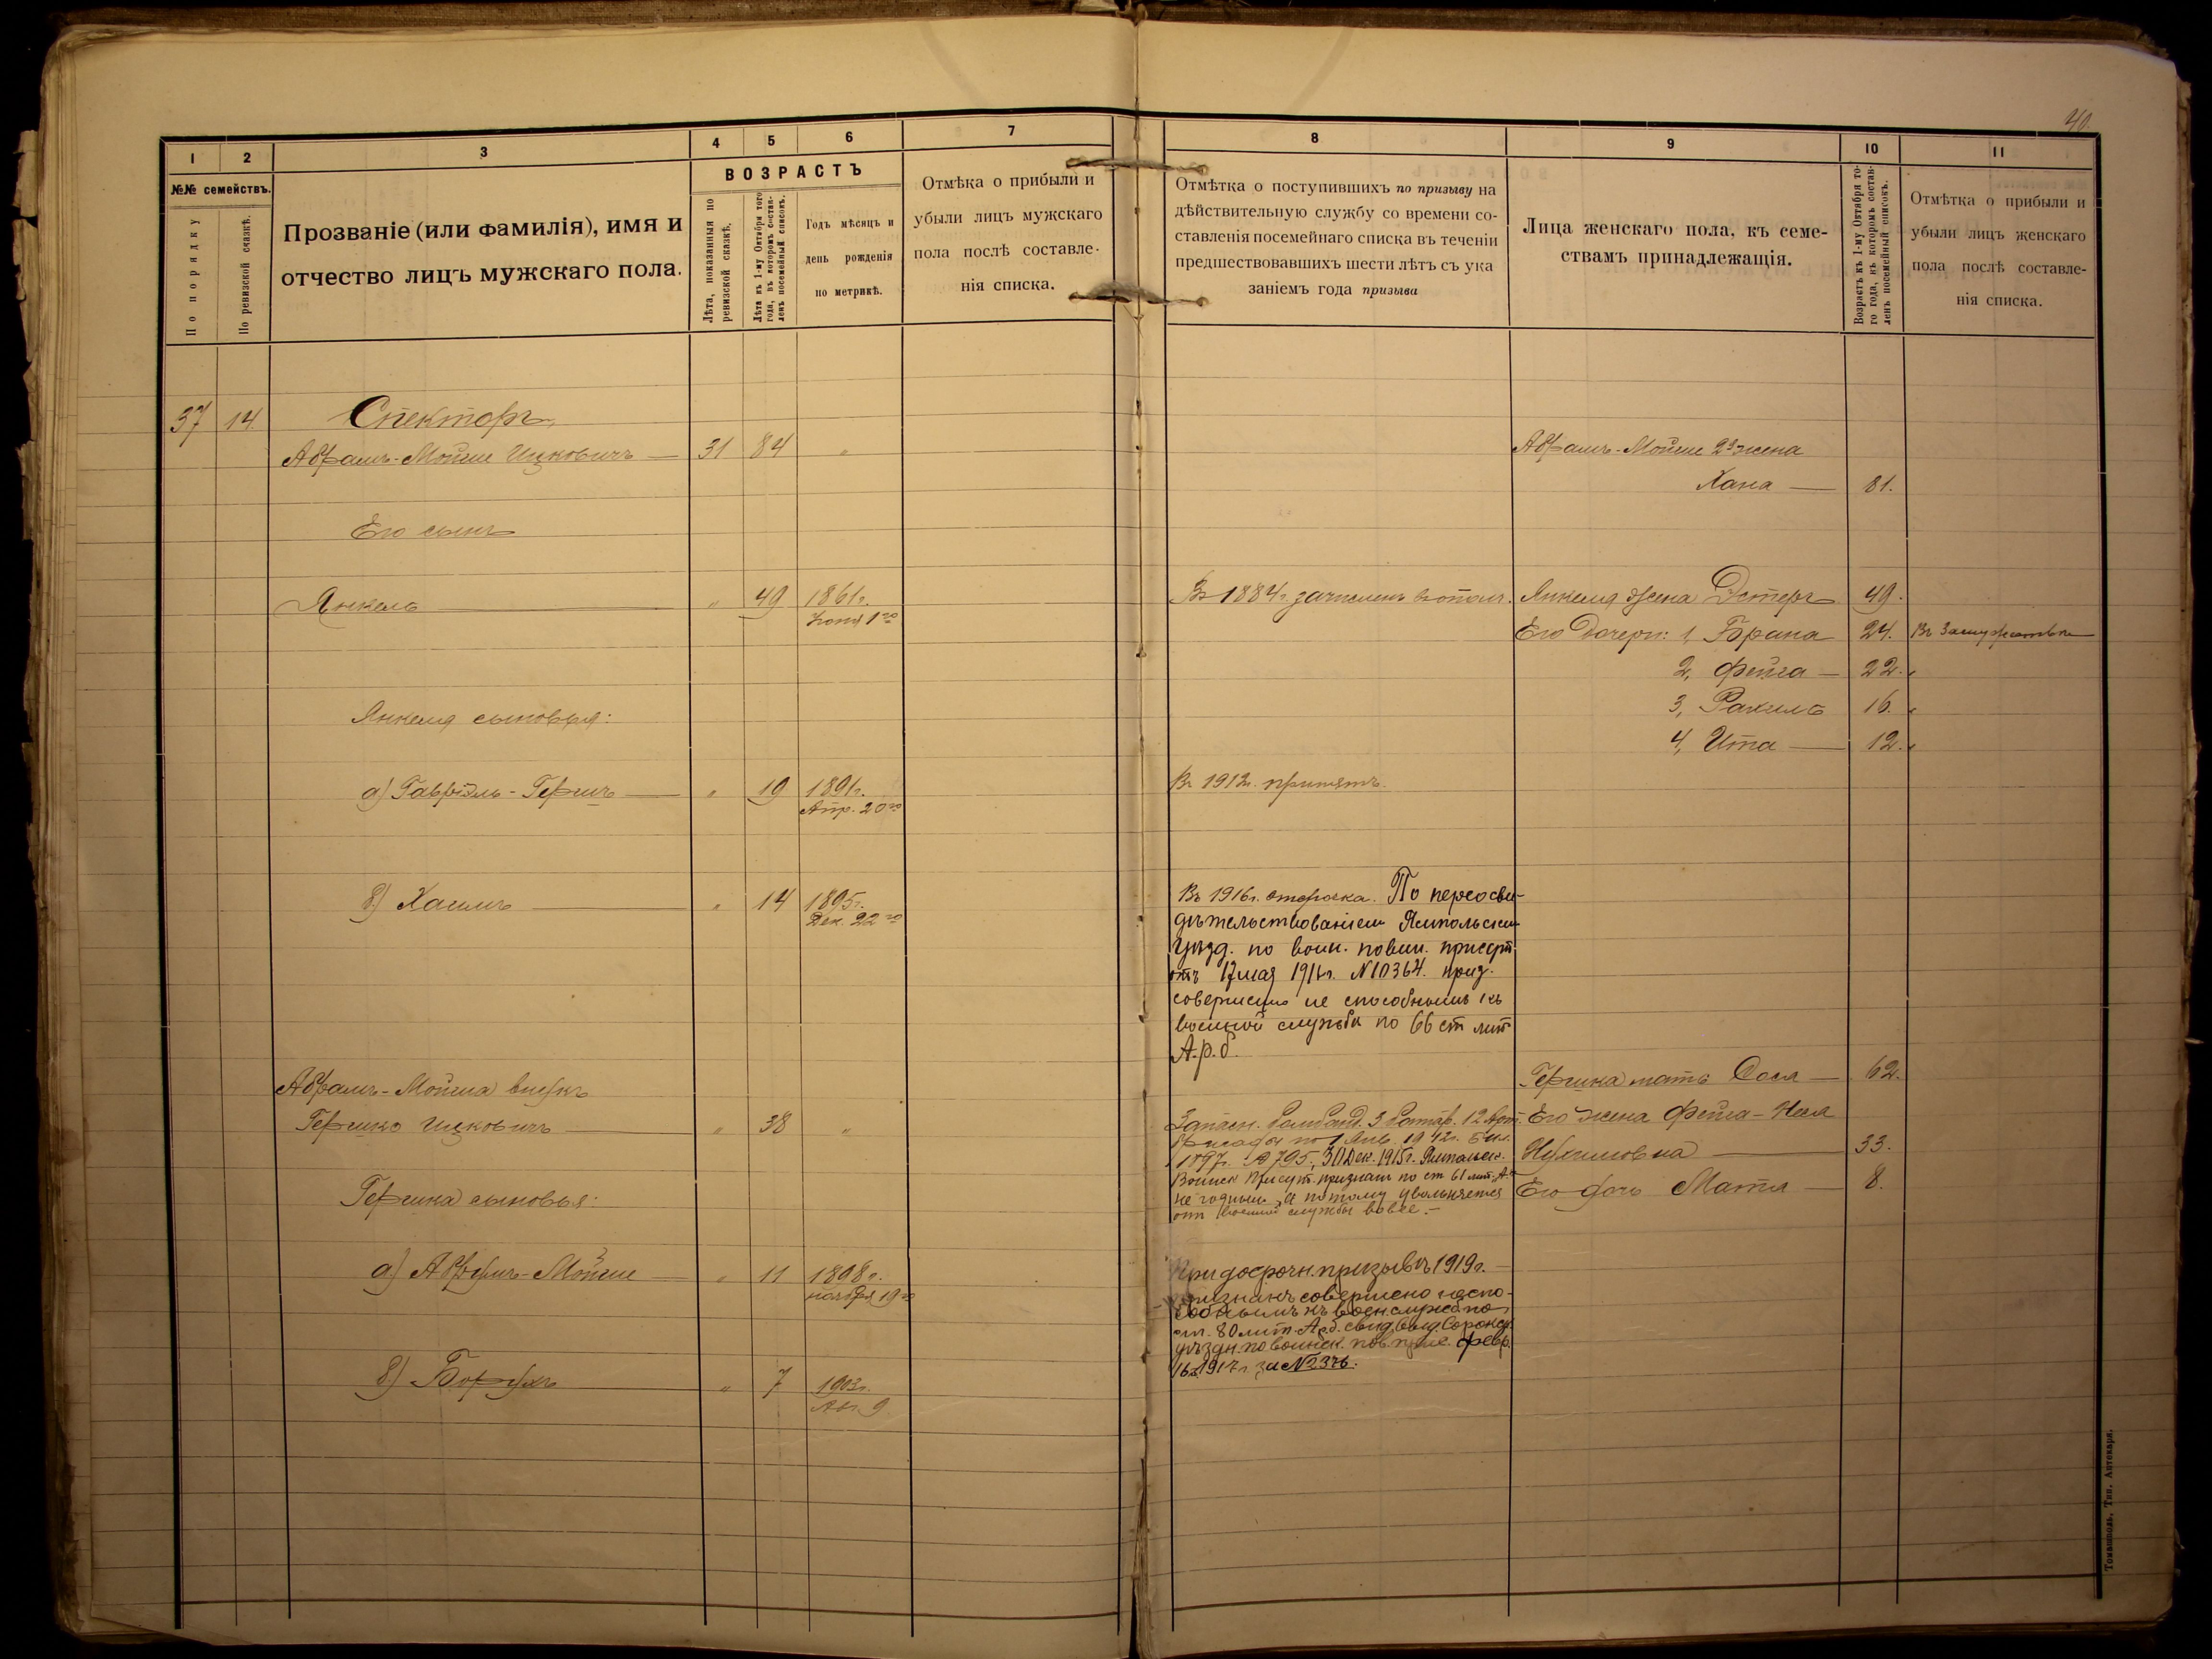 40.
1 2 3 4 5 6 7
№№ семействъ.
По порядку
По ревизской сказкѣ.
Прозваніе (или фамилія), имя и
отчество лицъ мужскаго пола.
ВОЗРАСТЪ
Лѣта, показанныя по
ревизской сказкѣ,
Лѣта къ 1-му Октября того
года, въ которомъ состав-
ленъ посемейный списокъ.
Годъ мѣсяцъ и
день рожденія
по метрикѣ.
Отмѣка о прибыли и
убыли лицъ мужскаго
пола послѣ составле-
нія списка.
37 14. Спекторъ
Абрамъ-Мойше Ицковичъ — 31 84 "
Его сынъ
Янкель — " 49 1861г.
1го
Янкеля сыновья:
а) Гавріэль-Гершъ — " 19 1891г.
Апр. 20го
б) Хаимъ — " 14 1895г.
Дек. 22го
Абрамъ-Мойша внукъ
Гершко Ицковичъ — " 38 "
Гершка сыновья:
а) Абрумъ-Мойше — " 11 1898г.
ноября 19го
б) Борухъ — " 7 1903г.
Авг. 9
8 9 10 11
Отмѣтка о поступившихъ по призыву на
дѣйствительную службу со времени со-
ставленія посемейнаго списка въ теченіи
предшествовавшихъ шести лѣтъ съ ука
заніемъ года призыва
Лица женскаго пола, къ семе-
ствамъ принадлежащія.
Возрастъ къ 1-му Октября то-
го года, въ которомъ состав-
ленъ посемейный списокъ.
Отмѣтка о прибыли и
убыли лицъ женскаго
пола послѣ составле-
нія списка.
Абрамъ-Мойше 2я жена
Хана — 81.
Въ 1884г. зачисленъ в ополч. Янкеля жена Эстеръ 49.
Его Дочери: 1, Брана 24. Въ Замужествѣ
2, Фейга — 22. "
3, Рахиль 16. "
4, Ита — 12. "
Въ 1912г. принятъ.
Въ 1916г. отсрочка. По переосви-
дѣтельствованіем Ямпольским
уѣзд. по воин. повин. присут.
отъ 17 мая 191 г. N 10364. приз.
совершенно не способнымъ къ
военной службѣ по 66 ст лит
А.р.б.
Гершка мать Сося — 62.
Запасн. 3 батар. 12 Арт. Его жена Фейга-Неся
по 1 Янв. 1912г.
1897г. № 795, 30 Дек. 1915г. Ямпольск. Нухимовна — 33.
Воинск Присут. признанъ по ст 61 лит. А.
не годным, а потому увольняется Его дочь Матля — 8.
отъ военной службы вовсе.-
При досрочн. призывѣ 1919г.
признанъ совершено неспо-
собнымъ къ воен. службѣ по
ст. 80 лит. А р.б. свид. выд. Сорокск.
уѣздн. по воинск. пов. прис. февр.
16го 1917г. за № 2376.
Томашполь, Тип. Аптекаря.